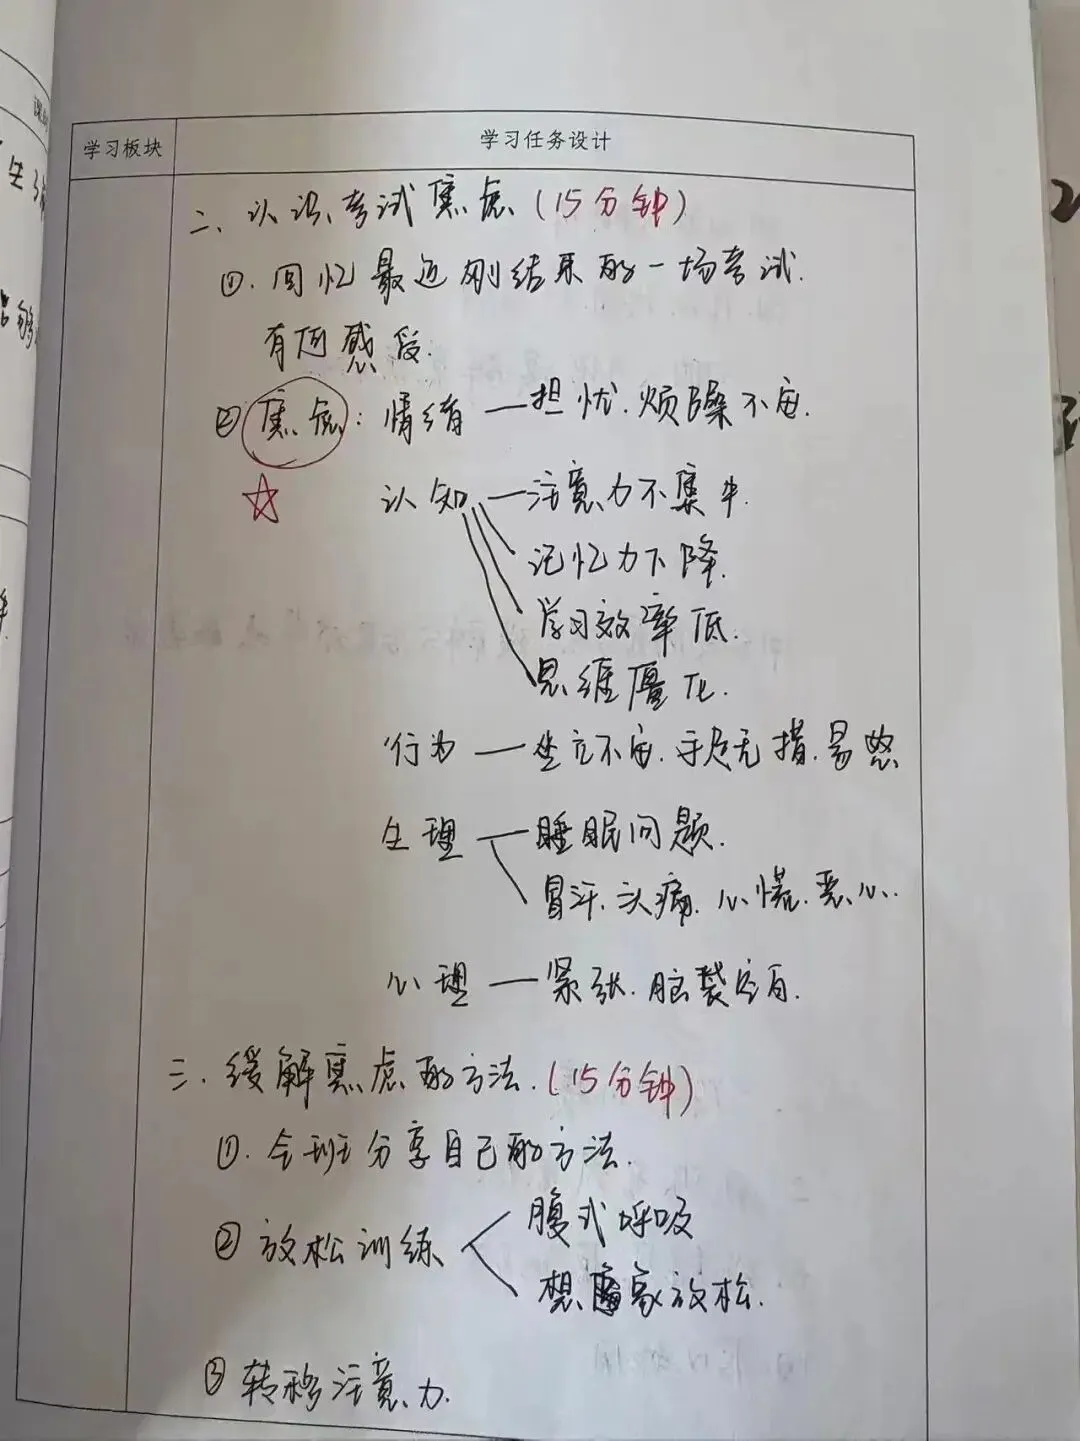 学习板块 学习任务设计
二、认识考试焦虑(15分钟)
①.回忆最近刚结束的一场考试.
有何感受.
② 焦虑:情绪—担忧.烦躁不安.
认知—注意力不集中.
记忆力下降.
学习效率低.
思维僵化.
行为—坐立不安.手足无措.易怒
生理—睡眠问题.
冒汗.头痛.心慌.恶心.
心理—紧张.脑袋空白.
三.缓解焦虑的方法.(15分钟)
①.全班分享自己的方法.
②放松训练 腹式呼吸
想象放松.
③转移注意力.